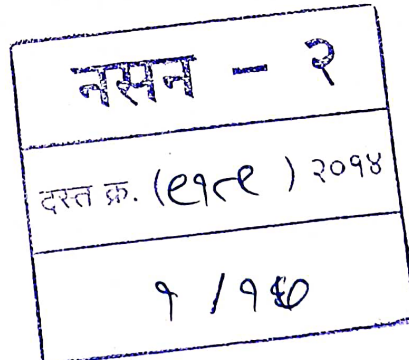 नसन - २
दस्त क्र. (९१८९) २०१४
१ /